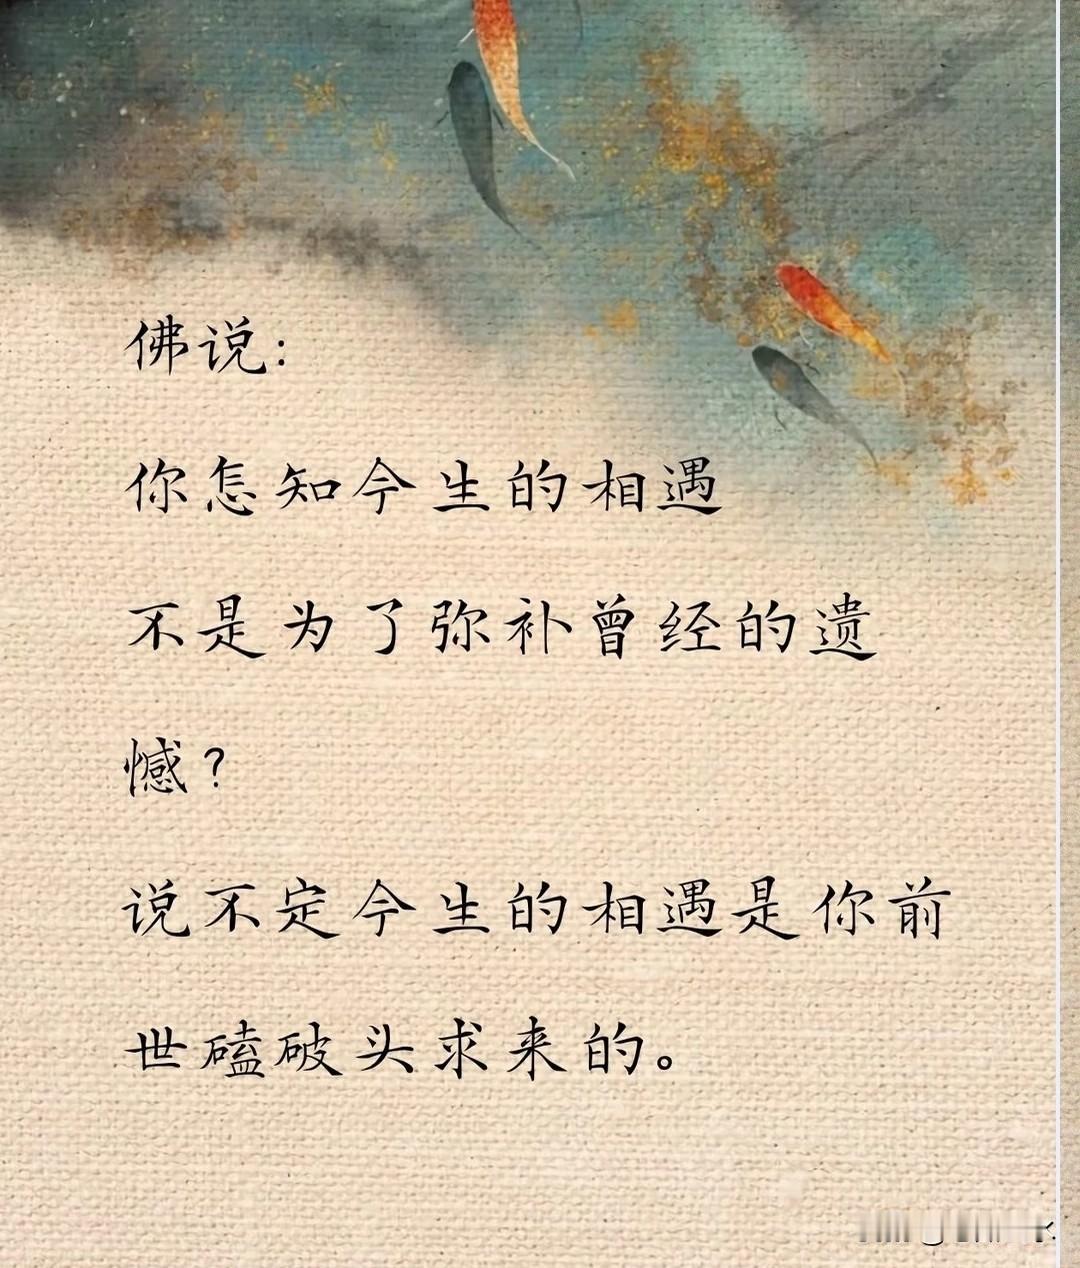 佛说:
你怎知今生的相遇
不是为了弥补曾经的遗
憾?
说不定今生的相遇是你前
世磕破头求来的。